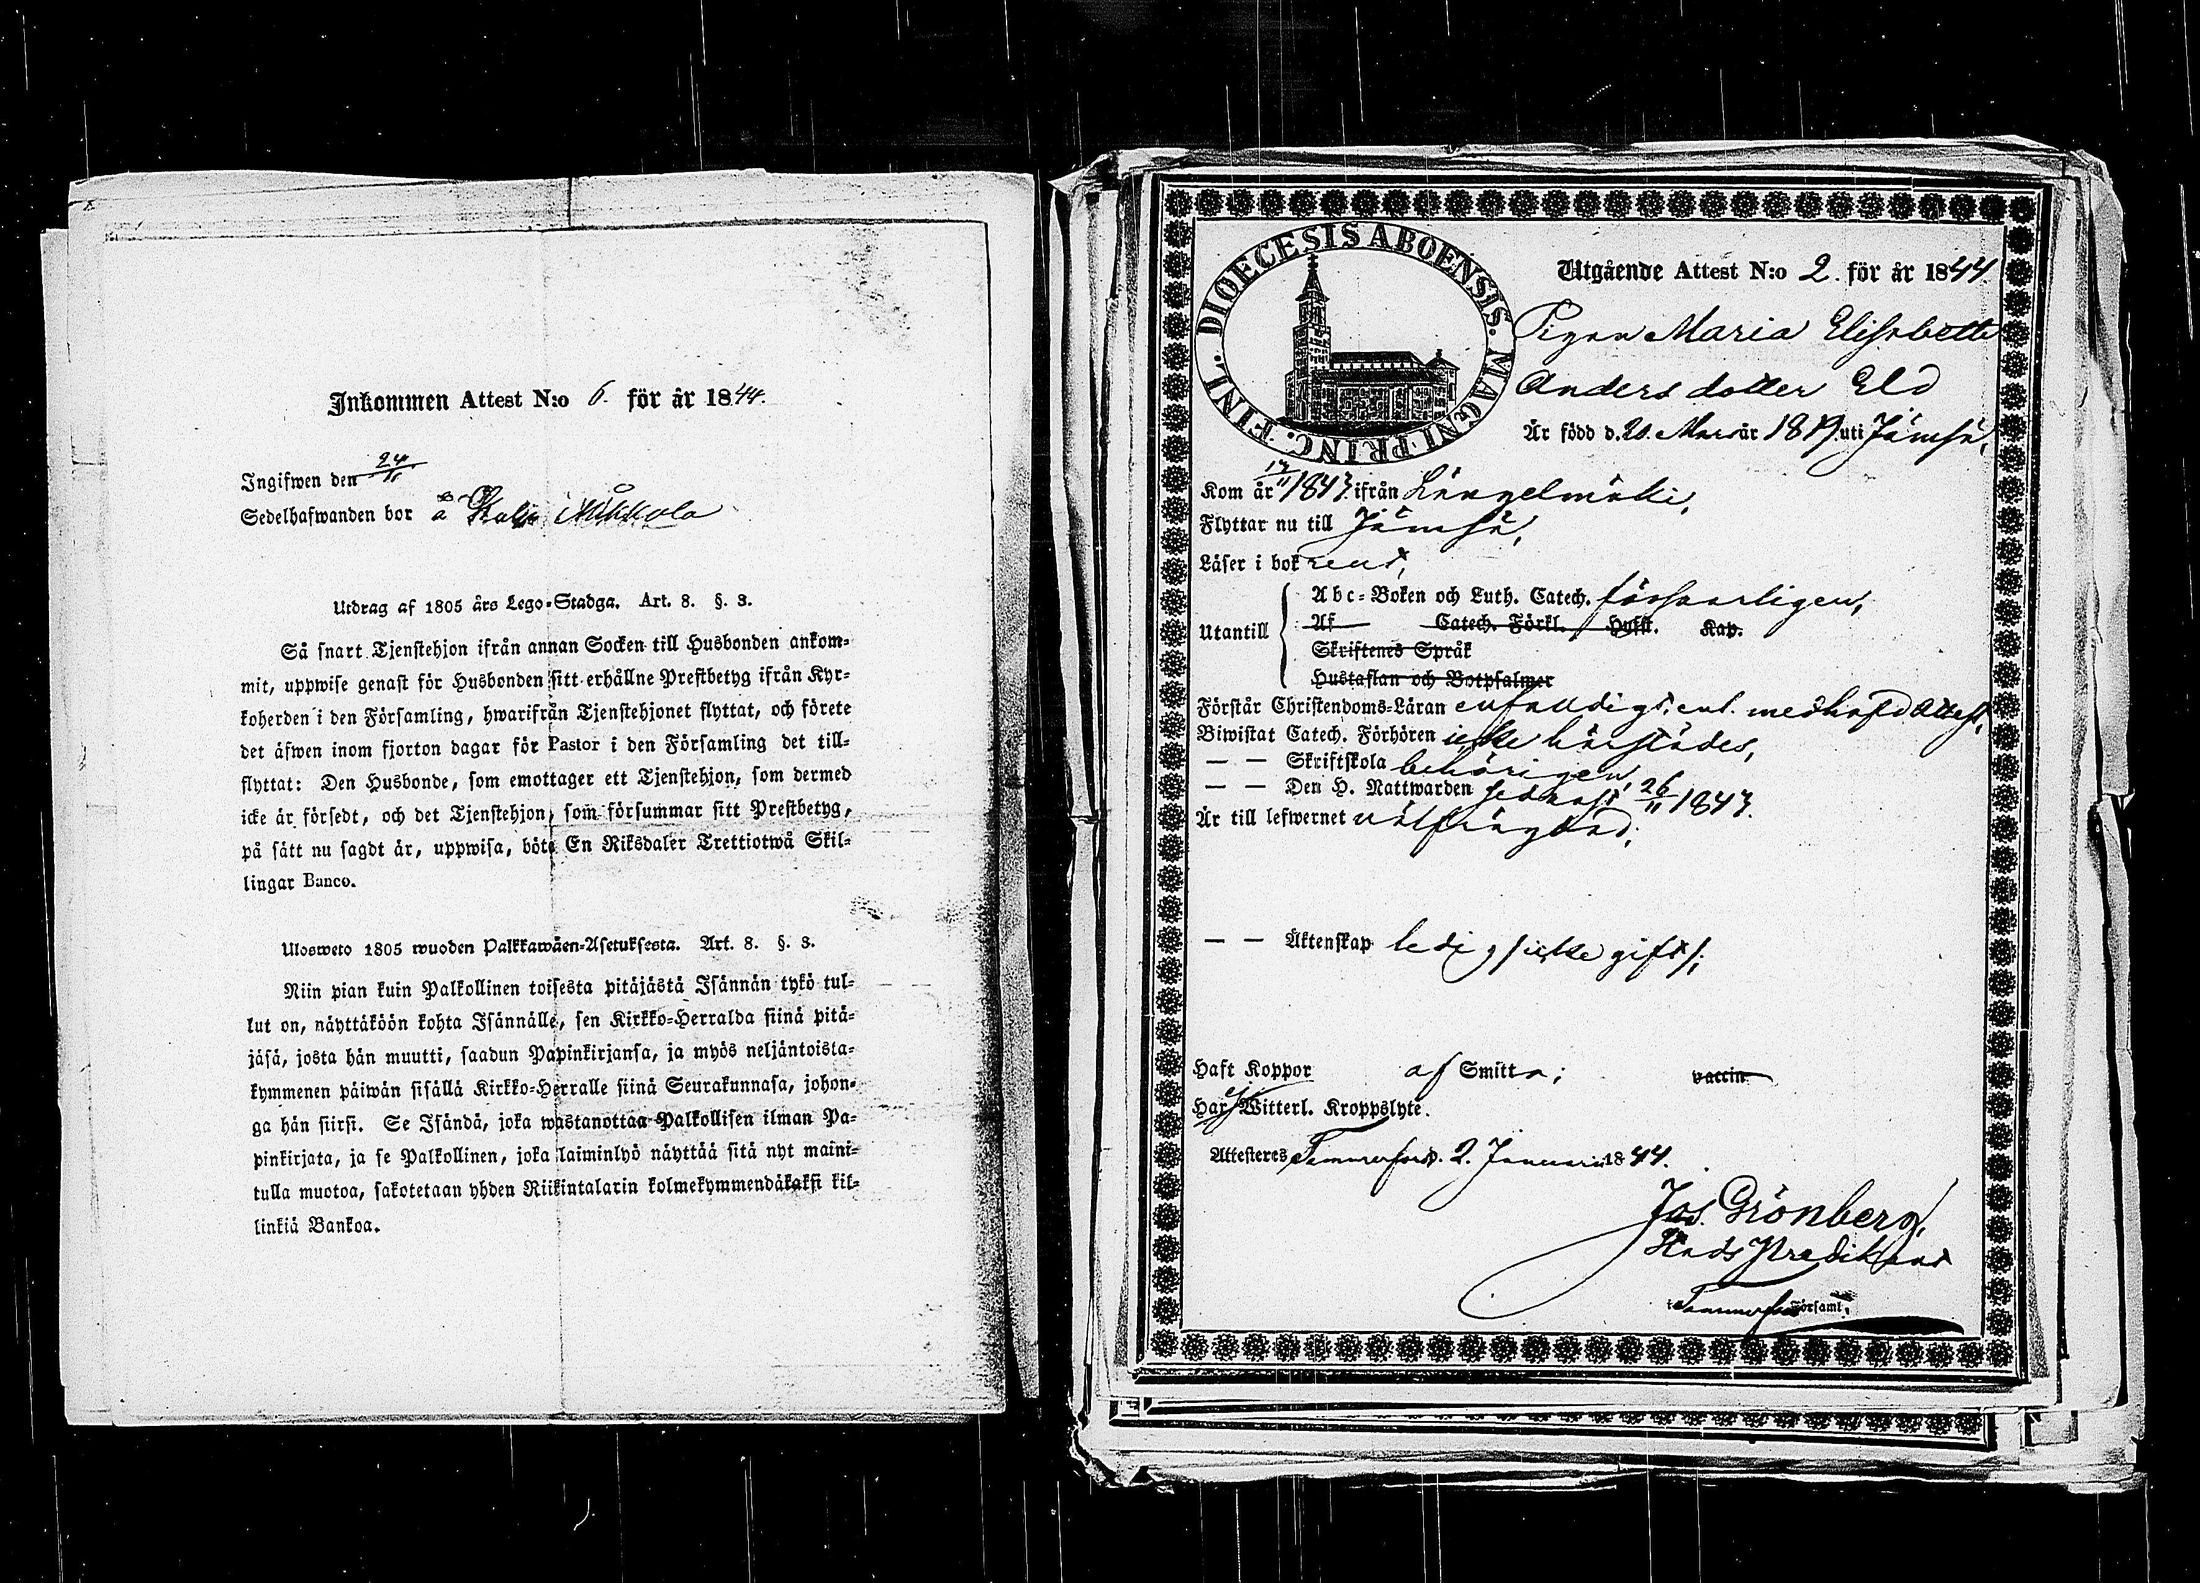 Inkommen Attest N:o 6. för år 1844.
Ingifwen den 24/1
Sedelhafwanden bor å Mukkola
Utdrag af 1805 års Lego-Stadga. Art. 8. §. 3.
Så snart Tjenstehjon ifrån annan Socken till Husbonden ankom-
mit, uppwise genast för Husbonden sitt erhållne Prestbetyg ifrån Kyr-
koherden i den Församling, hwarifrån Tjenstehjonet flyttat, och förete
det äfwen inom fjorton dagar för Pastor i den Församling det till-
flyttat: Den Husbonde, som emottager ett Tjenstehjon, som dermed
icke är försedt, och det Tjenstehjon, som försummar sitt Prestbetyg,
på sätt nu sagdt är, uppwisa, böte En Riksdaler Trettiotwå Skil-
lingar Banco.
Ulosweto 1805 wuoden Palkkawäen-Asetuksesta. Art. 8. §. 3.
Niin pian kuin Palkollinen toisesta pitäjästä Isännän tykö tul-
lut on, näyttäköön kohta Isännälle, sen Kirkko-Herralda siinä pitä-
jäsä, josta hän muutti, saadun Papinkirjansa, ja myös neljäntoista-
kymmenen päiwän sisällä Kirkko-Herralle siinä Seurakunnasa, johon-
ga hän siirsi. Se Isändä, joka wastanottaa Palkollisen ilman Pa-
pinkirjata, ja se Palkollinen, joka laiminlyö näyttää sitä nyt maini-
tulla muotoa, sakotetaan yhden Riikintalarin kolmekymmendäkaksi kil-
linkiä Bankoa.
DIOECESIS ABOENSIS. MAGNI PRINC. FINL.
Utgående Attest N:o 2. för år 1844.
Pigan Maria Elisabeth
Anders dotter Eld
Är född d. 20. Mars år 1819. uti Jämsä,
Kom år 17/11 1843. ifrån Längelmäki,
Flyttar nu till Jämsä,
Läser i bok rent,
Utantill
Abc-Boken och Luth. Catech. försvarligen,
Af Catech. Förkl. Hufst. Kap.
Skriftenes Språk
Hustaflan och Botpsalmer
Förstår Christendoms-Läran enfaldigt, enl. medhafd Attest,
Biwistat Catech. Förhören icke härstädes,
— — Skriftskola behörigen,
— — Den H. Nattwarden sednast 26/11 1843.
Är till lefwernet wälfrägdad;
— — Äktenskap ledig /: icke gift :/;
Haft Koppor af Smitta;
vaccin
Har ej Witterl. Kroppslyte.
Attesteres Tammerfors d. 2. Januarii 1844.
Jos. Grönberg,
Stads Predikant
i Tammerfors Församl.